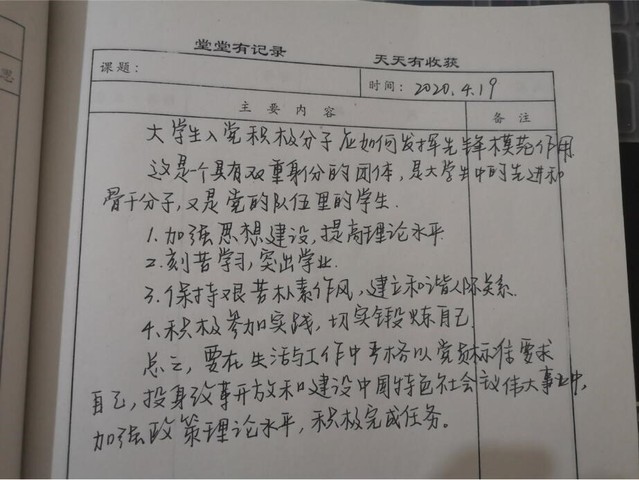 堂堂有记录 天天有收获
课题：
时间：2020.4.19
主要内容 备注
大学生入党积极分子应如何发挥先锋模范作用
这是一个具有双重身份的团体，是大学生中的先进和
骨干分子，又是党的队伍里的学生.
1.加强思想建设，提高理论水平
2.刻苦学习，突出学业.
3.保持艰苦朴素作风，建立和谐人际关系.
4.积极参加实践，切实锻炼自己.
总之，要在生活与工作中严格以党员标准要求
自己，投身改革开放和建设中国特色社会主义伟大事业中，
加强政策理论水平，积极完成任务。